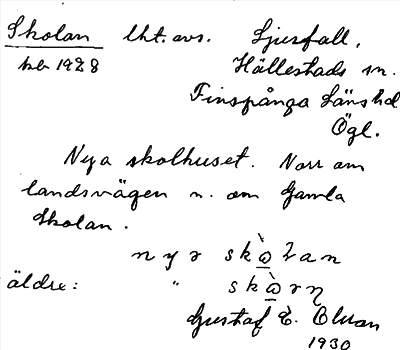 Skolan lht. avs. Ljusfall,
1928 Hällestads sn.
Finspånga Länshd
Ögl.
Nya skolhuset. Norr om
landsvägen n. om Gamla
Skolan.
nyɘ skὼlan
äldre: " skὼɿŋ
Gustaf E. Olson
1930